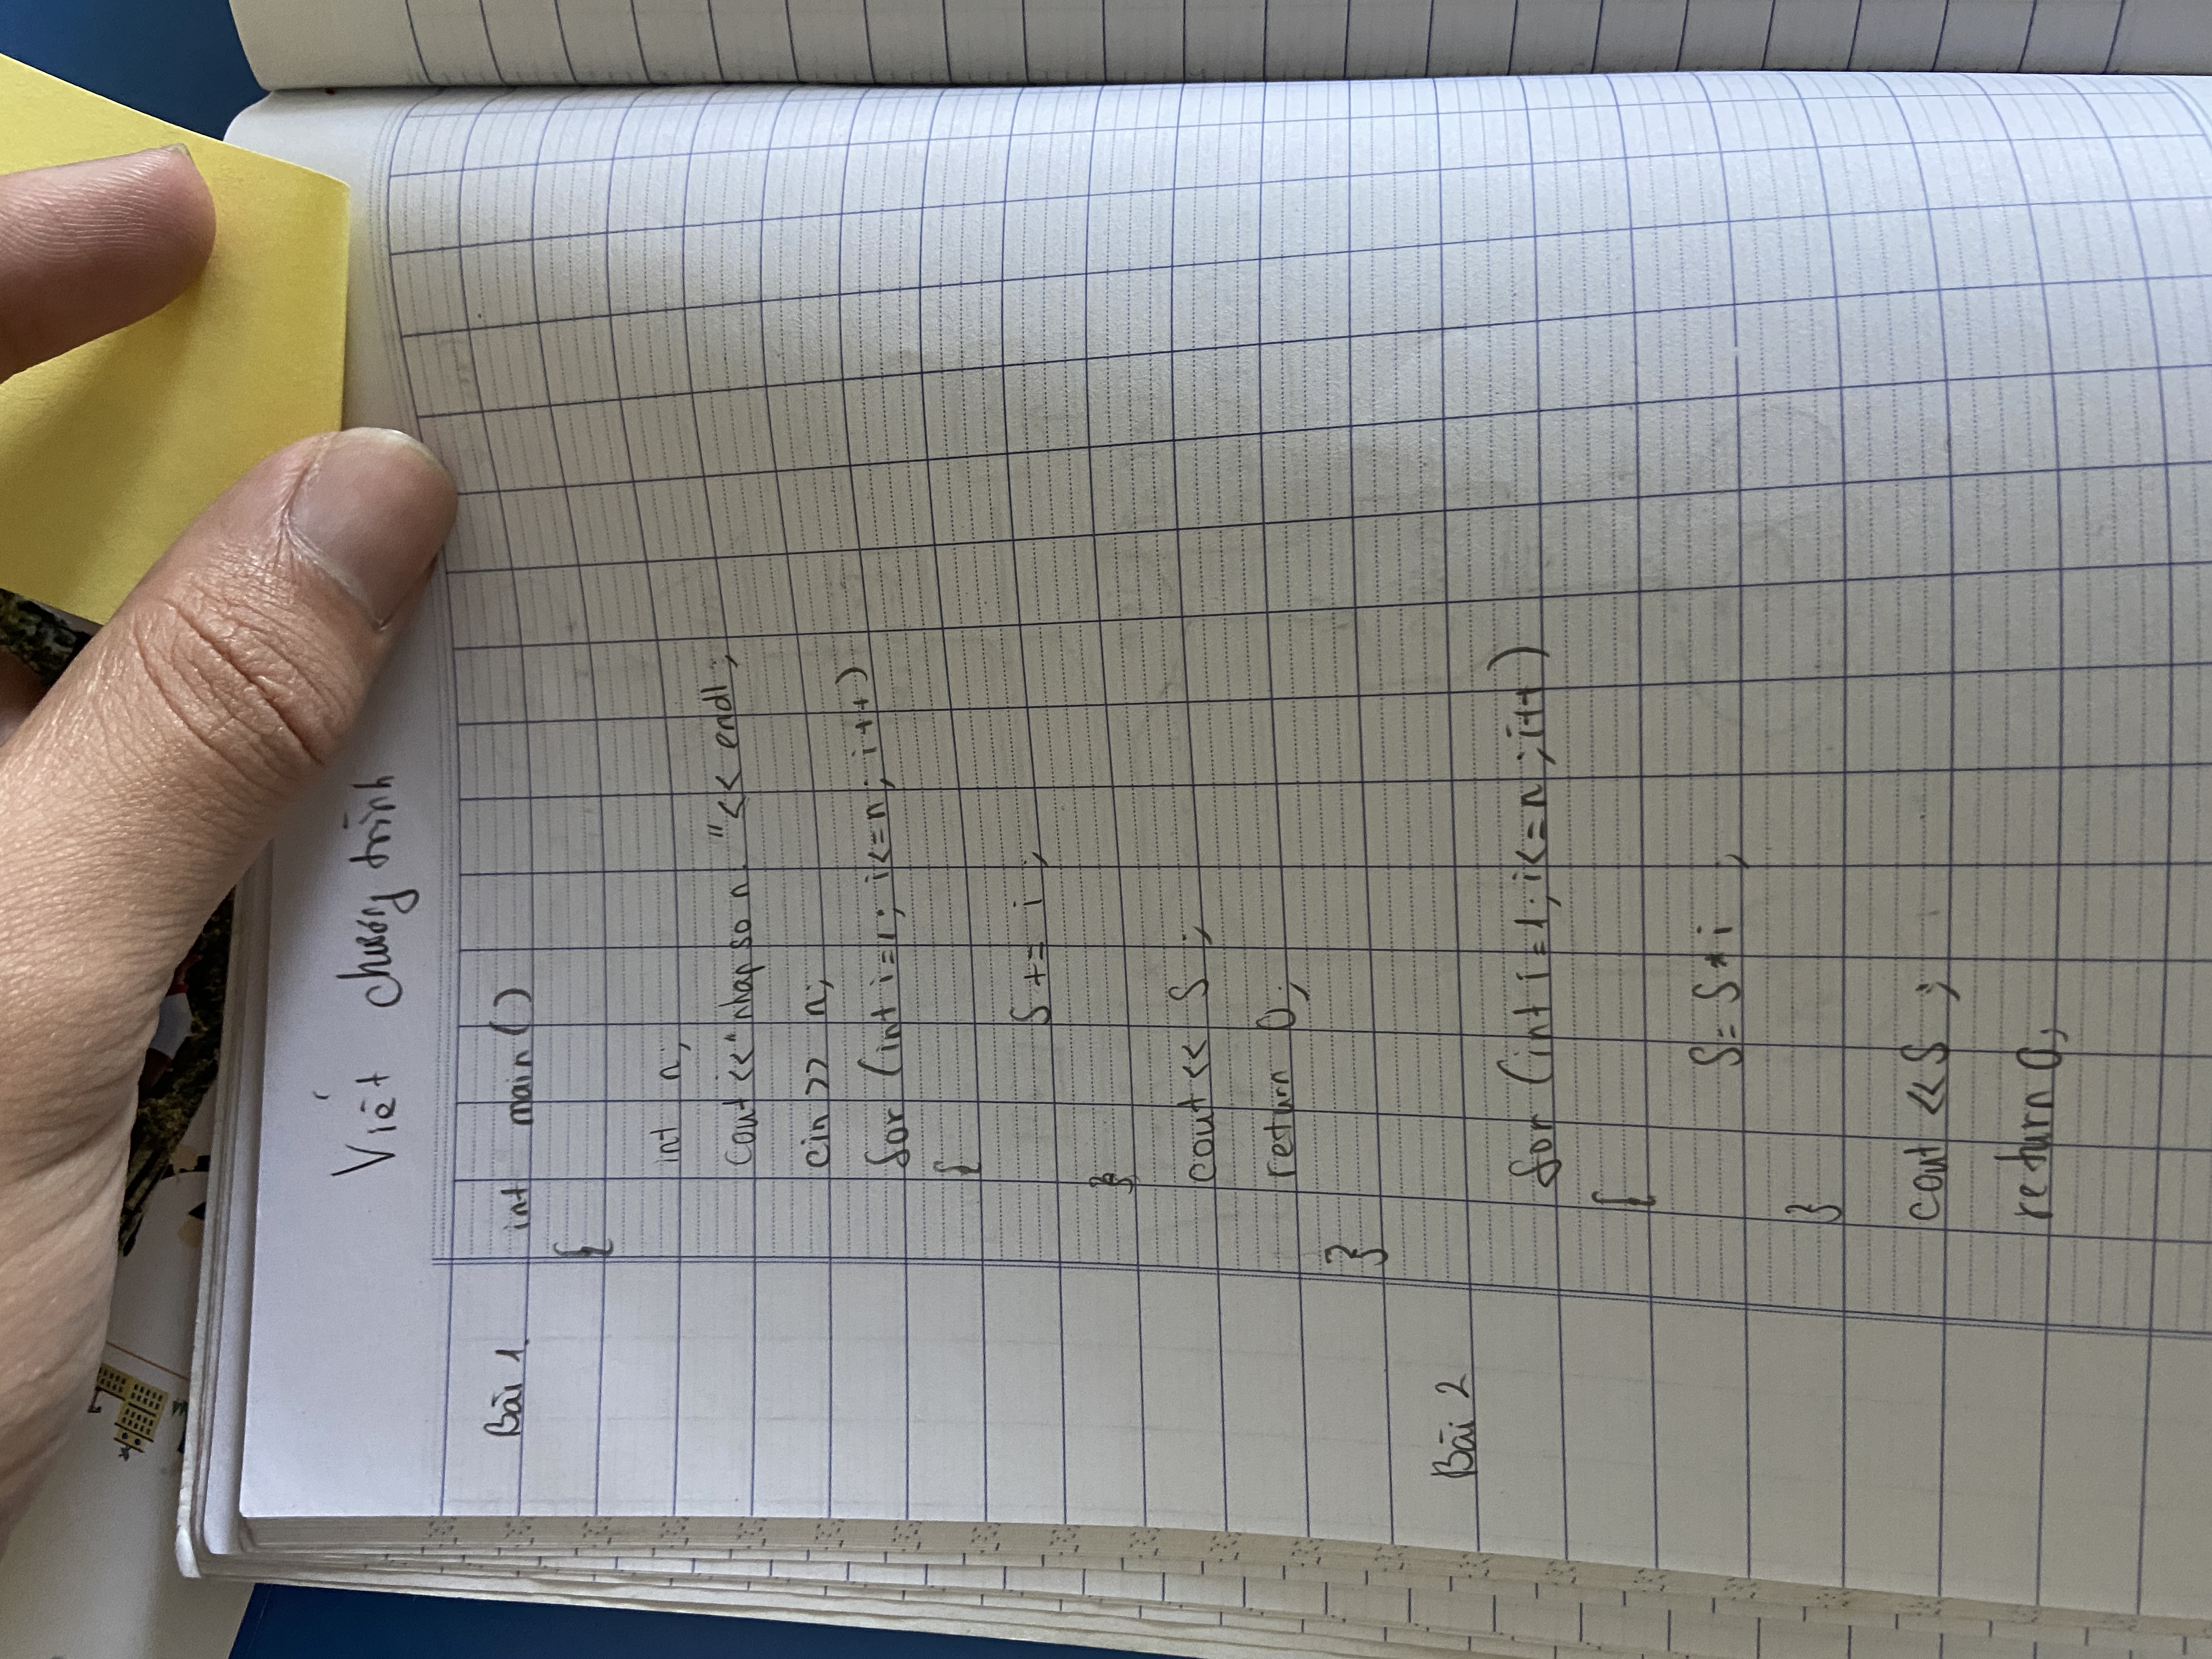 Viết chương trình
Bài 1. int main()
{
int n;
cout << "nhap so n. " << endl;
cin >> n;
for (int i=1; i<=n; i++)
{
S += i ;
}
cout << S ;
return 0;
}
Bài 2
for (int i=1; i<=n; i++)
{
S = S * i ;
}
cout << S ;
return 0;